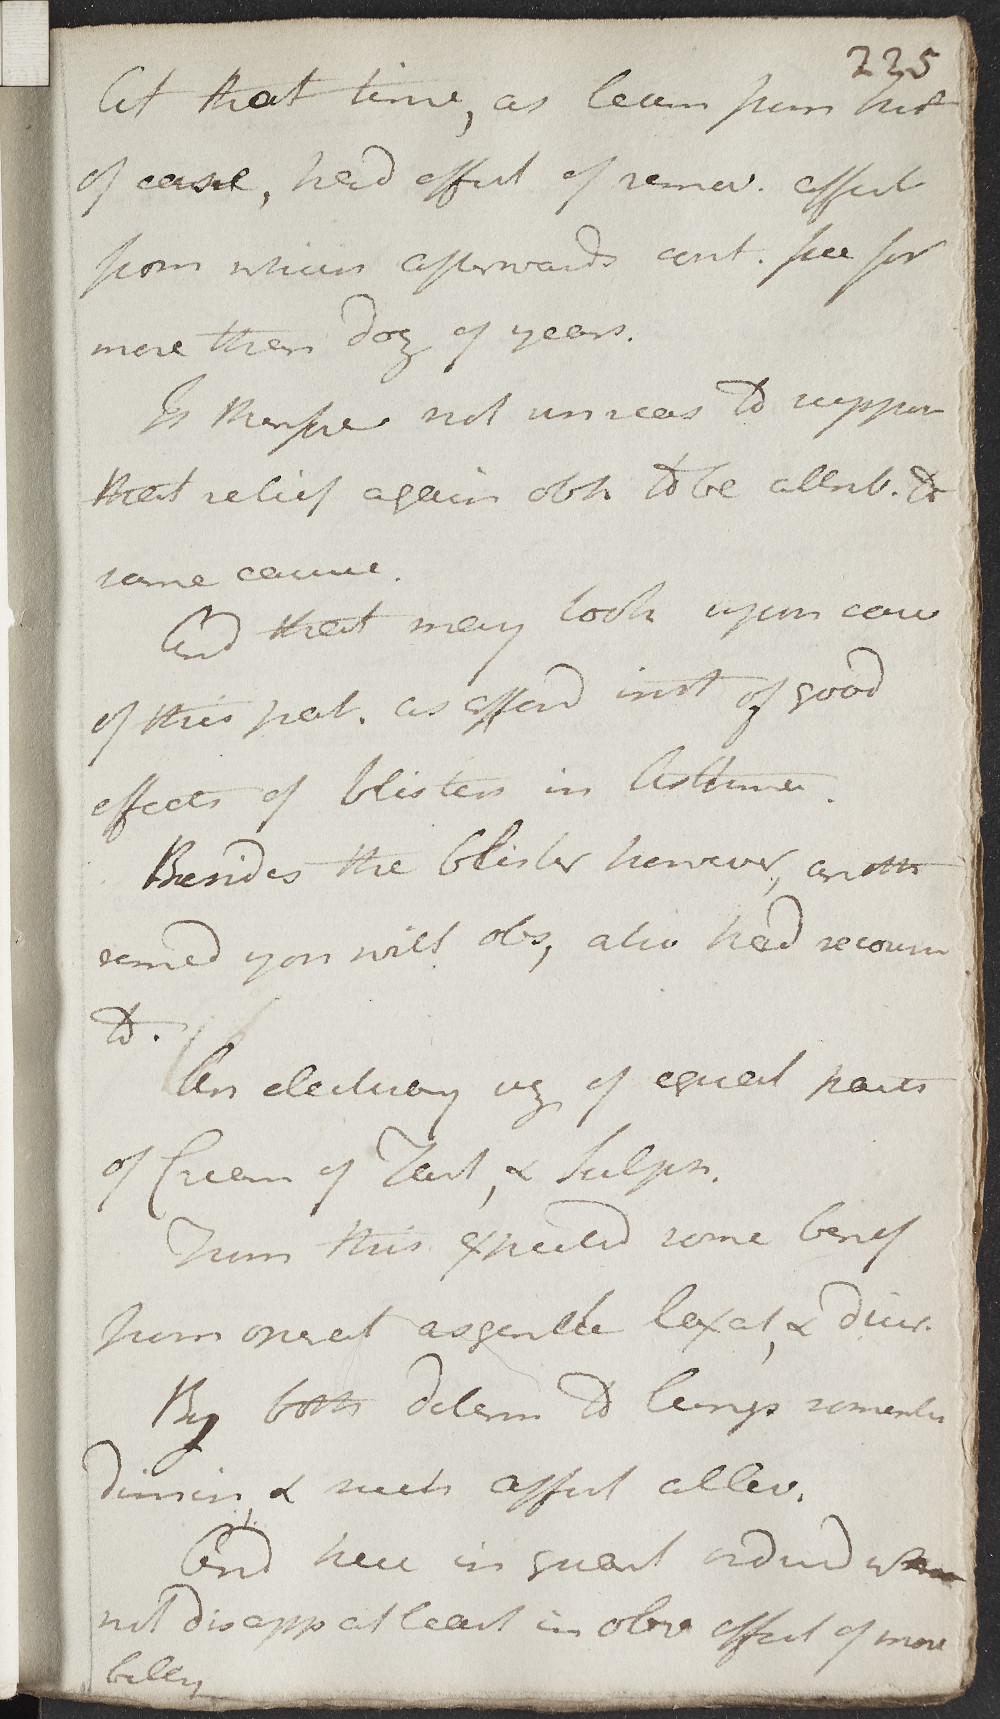 225
At that time, as learn from hist
of case, had effect of remov. affect
from which afterwards cont. free for
more than doz of years.
Is therefore not unreas to suppose
that relief again obt to be attrib. to
same cause.
And that may look upon case
of this pat. as afford inst of good
effects of blisters in Asthma.
Besides the blister however, anoth
remed you will obs, also had recourse
to.
An electuary viz of equal parts
of Cream of Tart, & Sulph.
From this expected some benef
from operat as gentle laxat, & diur.
By both determ to lungs somewhat
dimin, & such affect allev.
And here in quant ordered was
not disapp at least in obv effect of move
belly